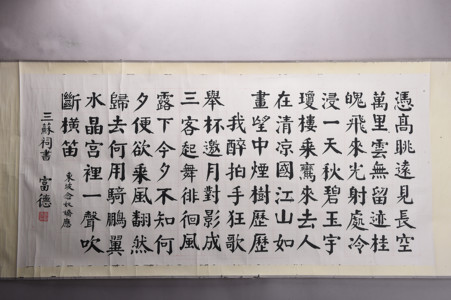 憑高眺遠見長空
萬里雲無留迹桂
魄飛來光射處冷
浸一天秋碧玉宇
瓊樓乘鸞來去人
在清凉國江山如
畫望中煙樹歷歷
我醉拍手狂歌
舉杯邀月對影成
三客起舞徘徊風
露下今夕不知何
夕便欲乘風翻然
歸去何用騎鵬翼
水晶宮裡一聲吹
斷橫笛
東坡念奴嬌應
三蘇祠書 富德